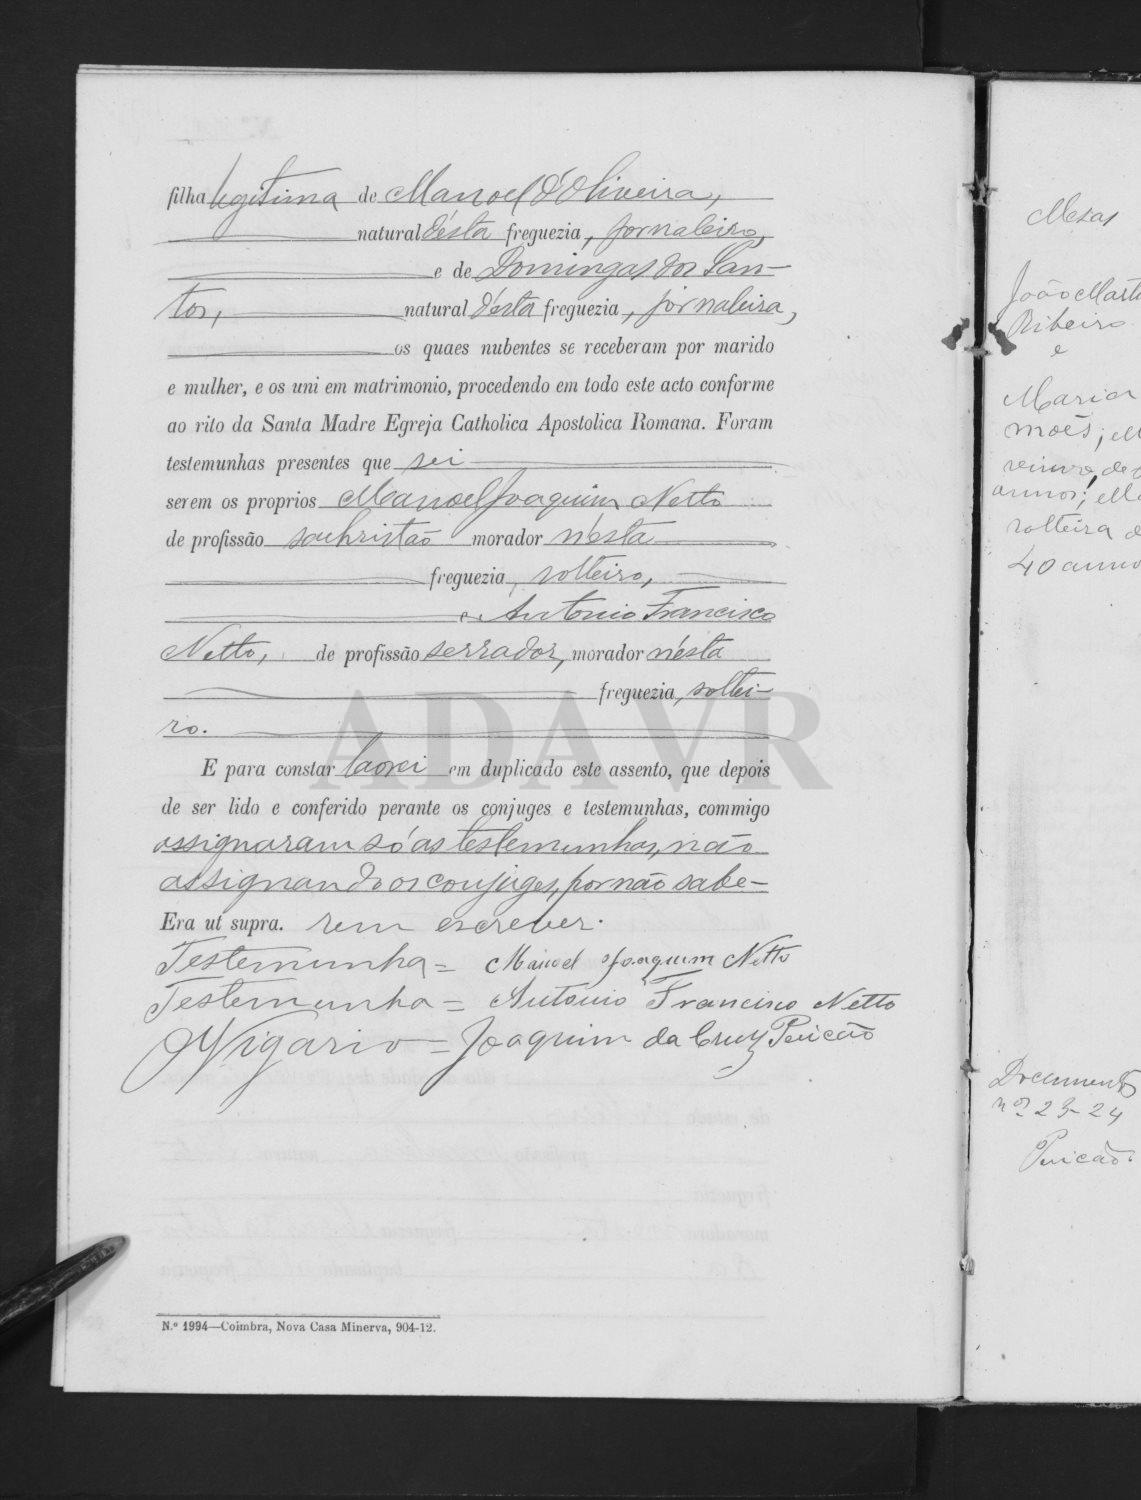 filha legitima de Manoel d'Oliveira,
natural désta freguezia, jornaleiro,
e de Domingas dos San-
tos, natural désta freguezia, jornaleira,
os quaes nubentes se receberam por marido
e mulher, e os uni em matrimonio, procedendo em todo este acto conforme
ao rito da Santa Madre Egreja Catholica Apostolica Romana. Foram
testemunhas presentes que sei
serem os proprios Manoel Joaquim Netto
de profissão sachristão morador nésta
freguezia, solteiro,
e Antonio Francisco
Netto, de profissão serrador, morador nésta
freguezia, soltei-
ro.
E para constar lavrei em duplicado este assento, que depois
de ser lido e conferido perante os conjuges e testemunhas, commigo
assignaram só as testemunhas, não
assignando os conjuges, por não sabe-
Era ut supra. rem escrever.
Testemunha = Manoel Joaquim Netto
Testemunha = Antonio Francisco Netto
O Vigario = Joaquim da Cruz Pericão
N.º 1994—Coimbra, Nova Casa Minerva, 904-12.
ADAVR
Mesas
João Marti
Ribeiro
e
Maria
mões; el
annos; elle
solteira
40 anno
Documentos
nos 23-24
Pericão